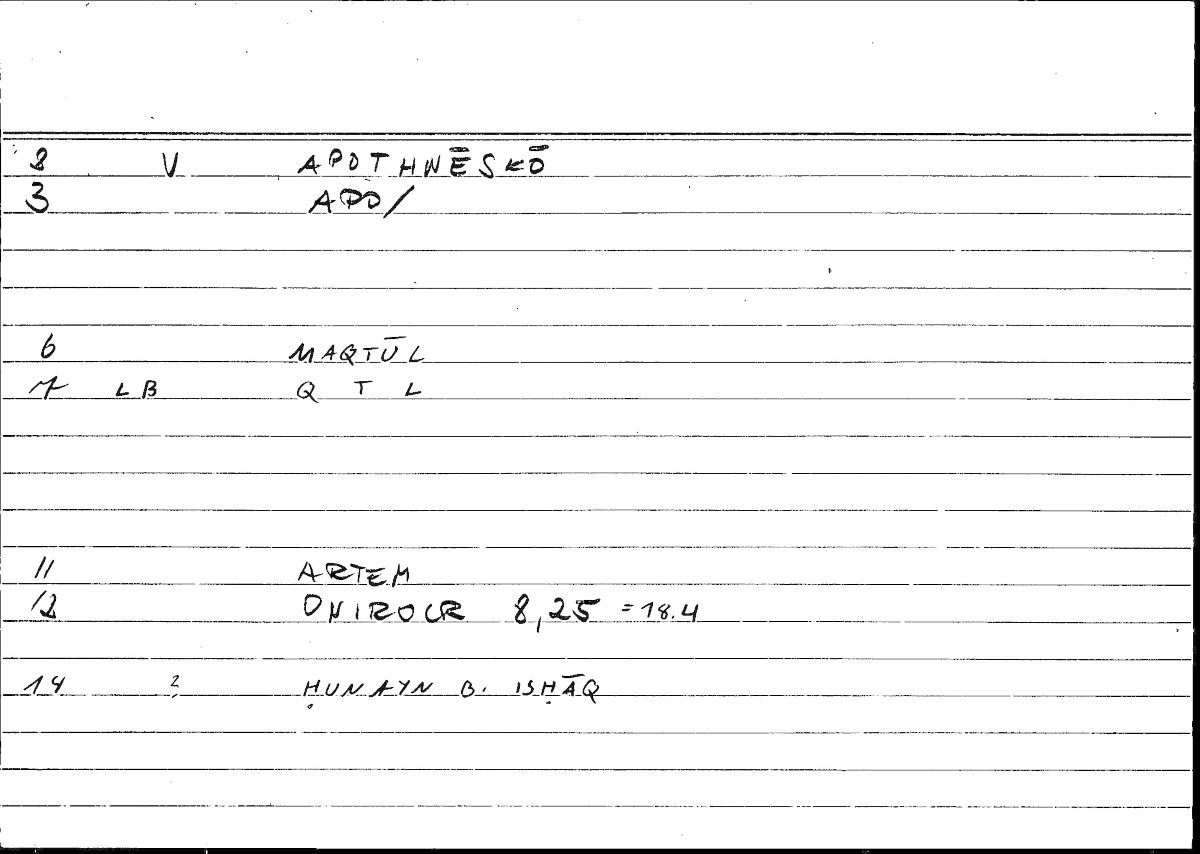 2 V APOTHNĒSKŌ
3 APO/
6 MAQTŪL
7 LB Q T L
11 ARTEM
12 ONIROCR 8,25 =18.4
14 ? ḤUNAYN B. ISḤĀQ